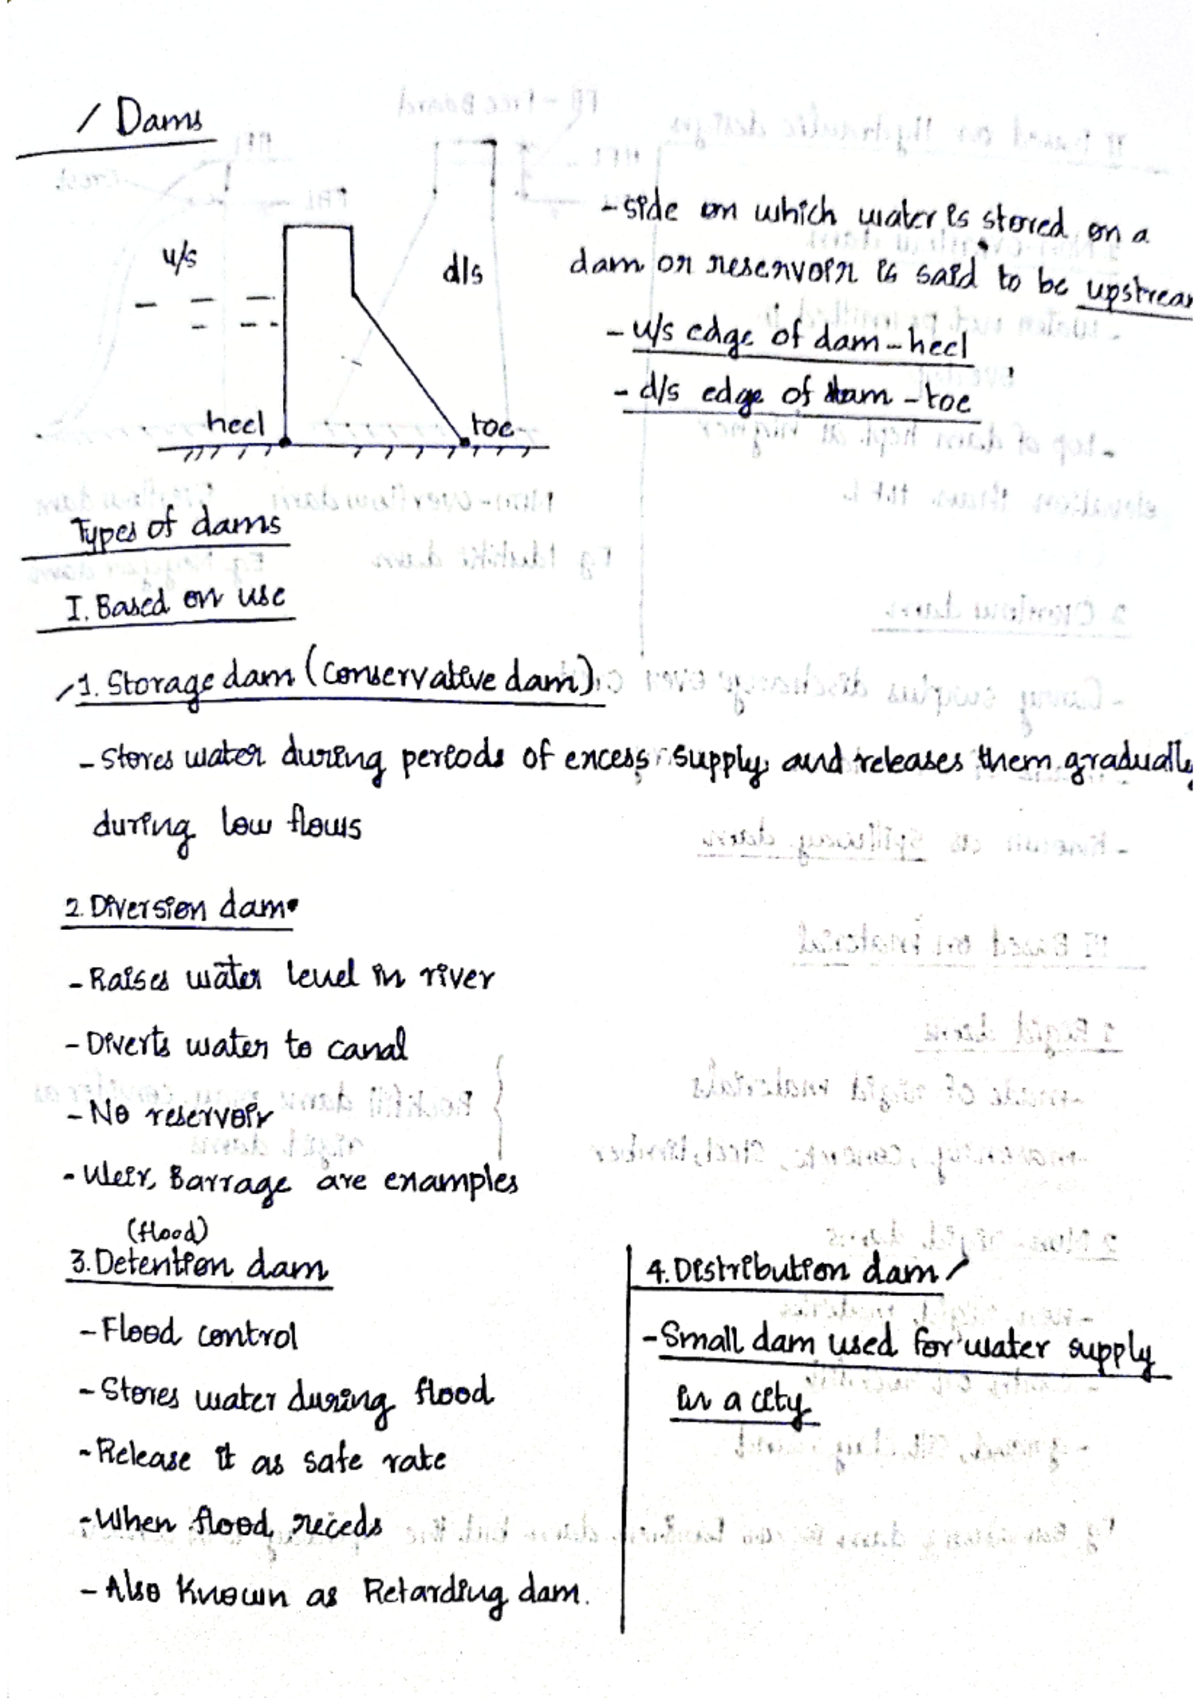 Dams
u/s
d/s
heel
toe
- side on which water is stored on a
dam or reservoir is said to be upstream
- u/s edge of dam - heel
- d/s edge of dam - toe
Types of dams
I. Based on use
1. Storage dam (conservative dam)
- Stores water during periods of excess supply and releases them gradually
during low flows
2. Diversion dam
- Raises water level in river
- Diverts water to canal
- No reservoir
- Weir, Barrage are examples
(flood)
3. Detention dam
- Flood control
- Stores water during flood
- Release it as safe rate
- When flood receds
- Also known as Retarding dam.
4. Distribution dam
- Small dam used for water supply
in a city